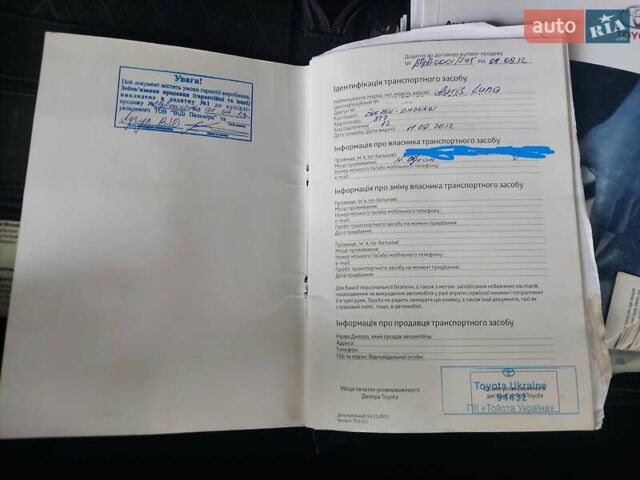 auto RIA.com
TOYO
Увага!
Цей документ містить умови гарантії виробника.
Зобов'язання продавця (гарантійні та інші)
викладено в додатку №1 до купівлі-
продажу №
укладеного ТОВ "ВіДі Пальміра"
Додаток до договору купівлі-продажу
№ від 09.09.12
Ідентифікація транспортного засобу
Найменування (марка, тип, модель, версія) Auris Luna
Ідентифікаційний №
Двигун №
Код моделі
Код кольору 8T7
Код оздоблення 12
Дата продажу (Дата видачі) 11.09.2012
Інформація про власника транспортного засобу
Прізвище, ім'я, по-батькові:
Місце проживання:
Номер міського та/або мобільного телефону:
e-mail
Інформація про зміну власника транспортного засобу
Прізвище, ім'я, по-батькові
Місце проживання:
Номер міського та/або мобільного телефону:
e-mail:
Пробіг транспортного засобу на момент придбання:
Дата придбання:
Прізвище, ім'я, по-батькові
Місце проживання:
Номер міського та/або мобільного телефону:
e-mail:
Пробіг транспортного засобу на момент придбання:
Дата придбання:
Для Вашої персональної безпеки, а також з метою запобігання небажаних наслідків,
пошкодження чи викрадення автомобіля у разі втрати сервісної книжки і потрапляння
її в чужі руки, Toyota не радить залишати цю книжку, а також інші документи, такі як
страховий поліс, тощо, в автомобілі.
Інформація про продавця транспортного засобу
Назва Дилера, який продав автомобіль:
Адреса:
Телефон:
ПІБ та підпис Відповідальної особи:
Місце печатки уповноваженого
Дилера Toyota
Toyota Ukraine
94432
ПІІ «Тойота Україна»
Дата публікації: 14.11.2011